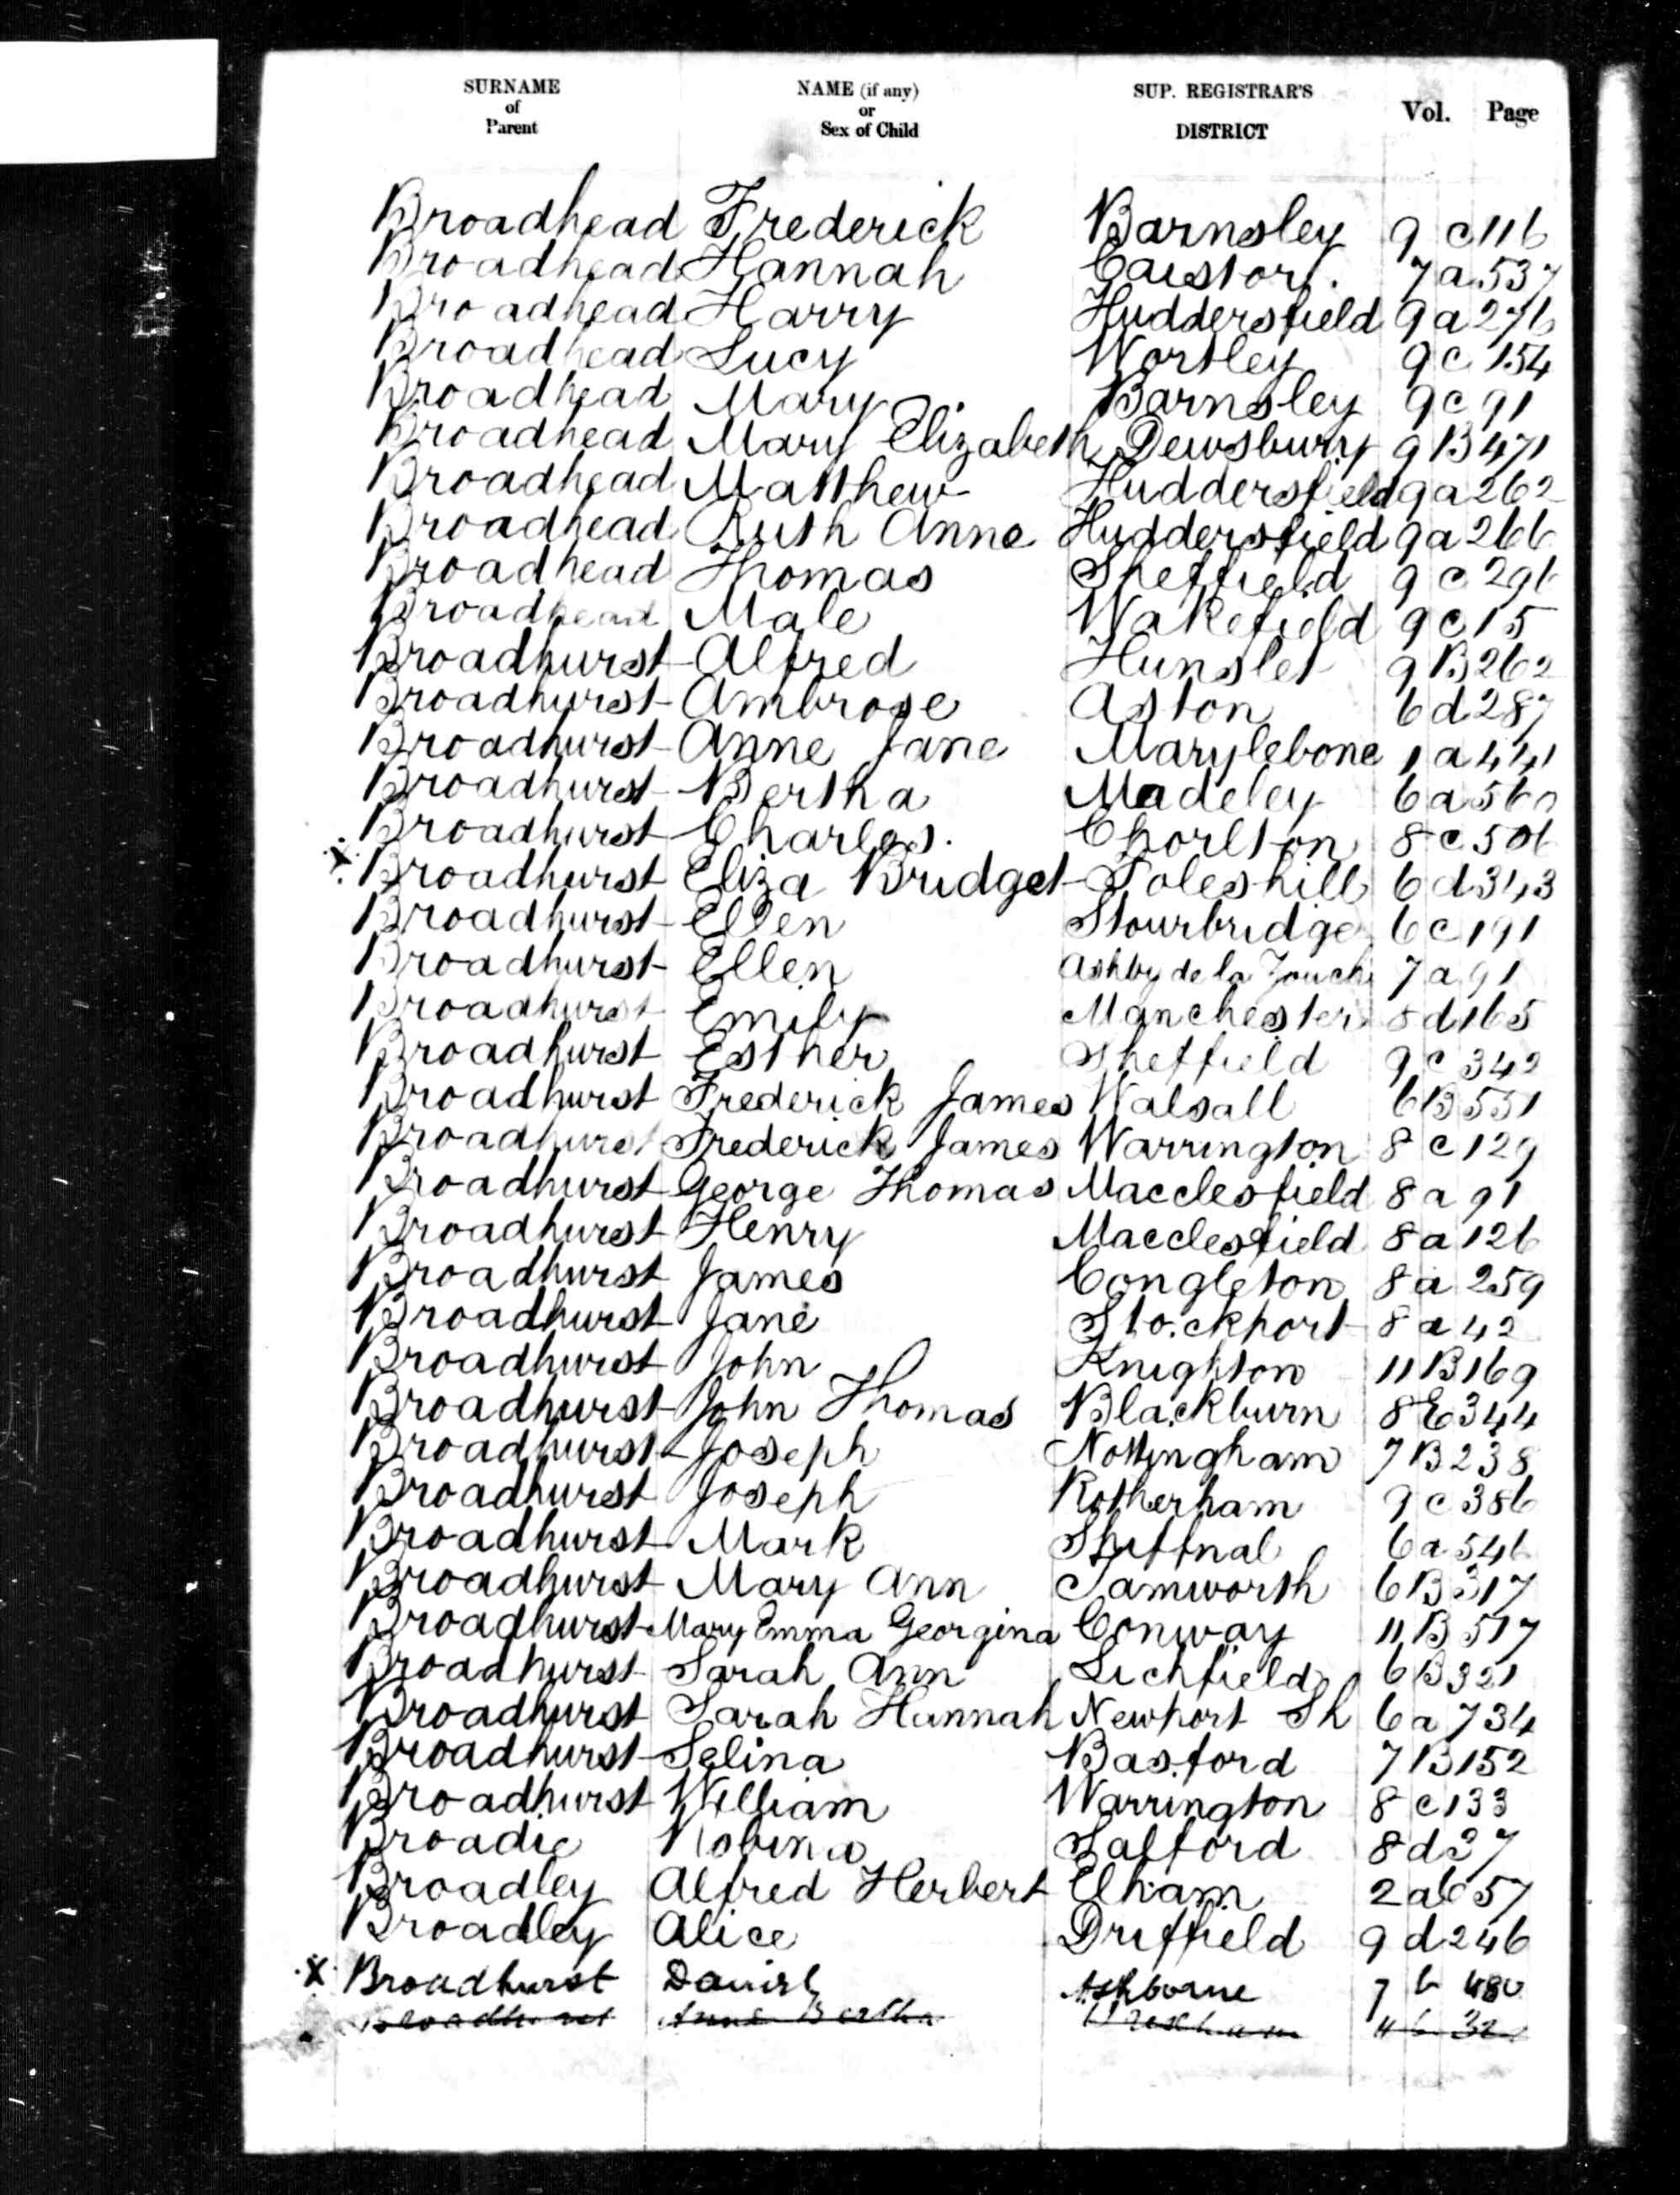 SURNAME of Parent NAME (if any) or Sex of Child SUP. REGISTRAR'S DISTRICT Vol. Page
Broadhead Frederick Barnsley 9 c 116
Broadhead Hannah Caistor. 7 a 537
Broadhead Harry Huddersfield 9 a 276
Broadhead Lucy Wortley 9 c 154
Broadhead Mary Barnsley 9 c 91
Broadhead Mary Elizabeth Dewsbury 9 B 471
Broadhead Matthew Huddersfield 9 a 262
Broadhead Ruth Anne Huddersfield 9 a 266
Broadhead Thomas Sheffield 9 c 296
Broadhead Male Wakefield 9 c 15
Broadhurst Alfred Hunslet 9 B 262
Broadhurst Ambrose Aston 6 d 287
Broadhurst Anne Jane Marylebone 1 a 441
Broadhurst Bertha Madeley 6 a 560
Broadhurst Charles. Chorlton 8 c 506
X Broadhurst Eliza Bridget Foleshill 6 d 343
Broadhurst Ellen Stourbridge 6 c 191
Broadhurst Ellen Ashby de la Zouch 7 a 91
Broadhurst Emily Manchester 8 d 165
Broadhurst Esther Sheffield 9 c 342
Broadhurst Frederick James Walsall 6 B 551
Broadhurst Frederick James Warrington 8 c 129
Broadhurst George Thomas Macclesfield 8 a 91
Broadhurst Henry Macclesfield 8 a 126
Broadhurst James Congleton 8 a 259
Broadhurst Jane Stockport 8 a 42
Broadhurst John Knighton 11 B 169
Broadhurst John Thomas Blackburn 8 E 344
Broadhurst Joseph Nottingham 7 B 238
Broadhurst Joseph Rotherham 9 c 386
Broadhurst Mark Shiffnal 6 a 546
Broadhurst Mary Ann Tamworth 6 B 317
Broadhurst Mary Emma Georgina Conway 11 B 517
Broadhurst Sarah Ann Lichfield 6 B 321
Broadhurst Sarah Hannah Newport Sh 6 a 734
Broadhurst Selina Basford 7 B 152
Broadhurst William Warrington 8 c 133
Broadie Robina Salford 8 d 37
Broadley Alfred Herbert Elham 2 a 657
Broadley Alice Driffield 9 d 246
X Broadhurst Daniel Ashborne 7 b 480
Broadhurst Anne Bertha Wrexham 11 b